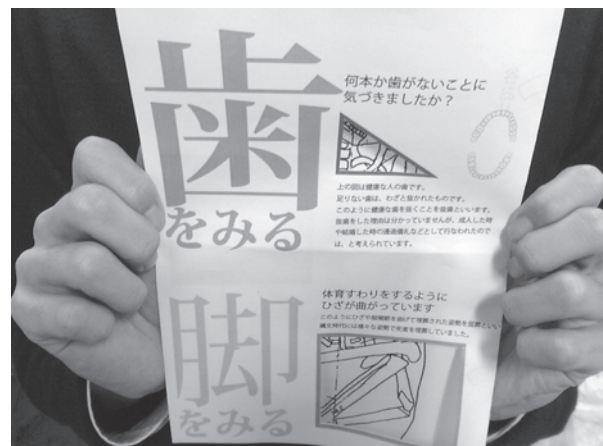 歯
をみる
何本か歯がないことに
気づきましたか？
上の図は健康な人の歯です。
足りない歯は、わざと抜かれたものです。
このように健康な歯を抜くことを抜歯といいます。
抜歯をした理由は分かっていませんが、成人した時
や結婚した時の通過儀礼などとして行なわれたので
は、と考えられています。
脚
をみる
体育すわりをするように
ひざが曲がっています
このようにひざや股関節を曲げて埋葬された姿勢を屈葬といい
縄文時代には様々な姿勢で死者を埋葬していました。